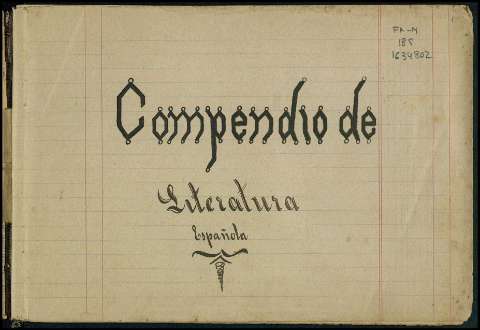 FA-M
185
1634802
Compendio de
Literatura
Española